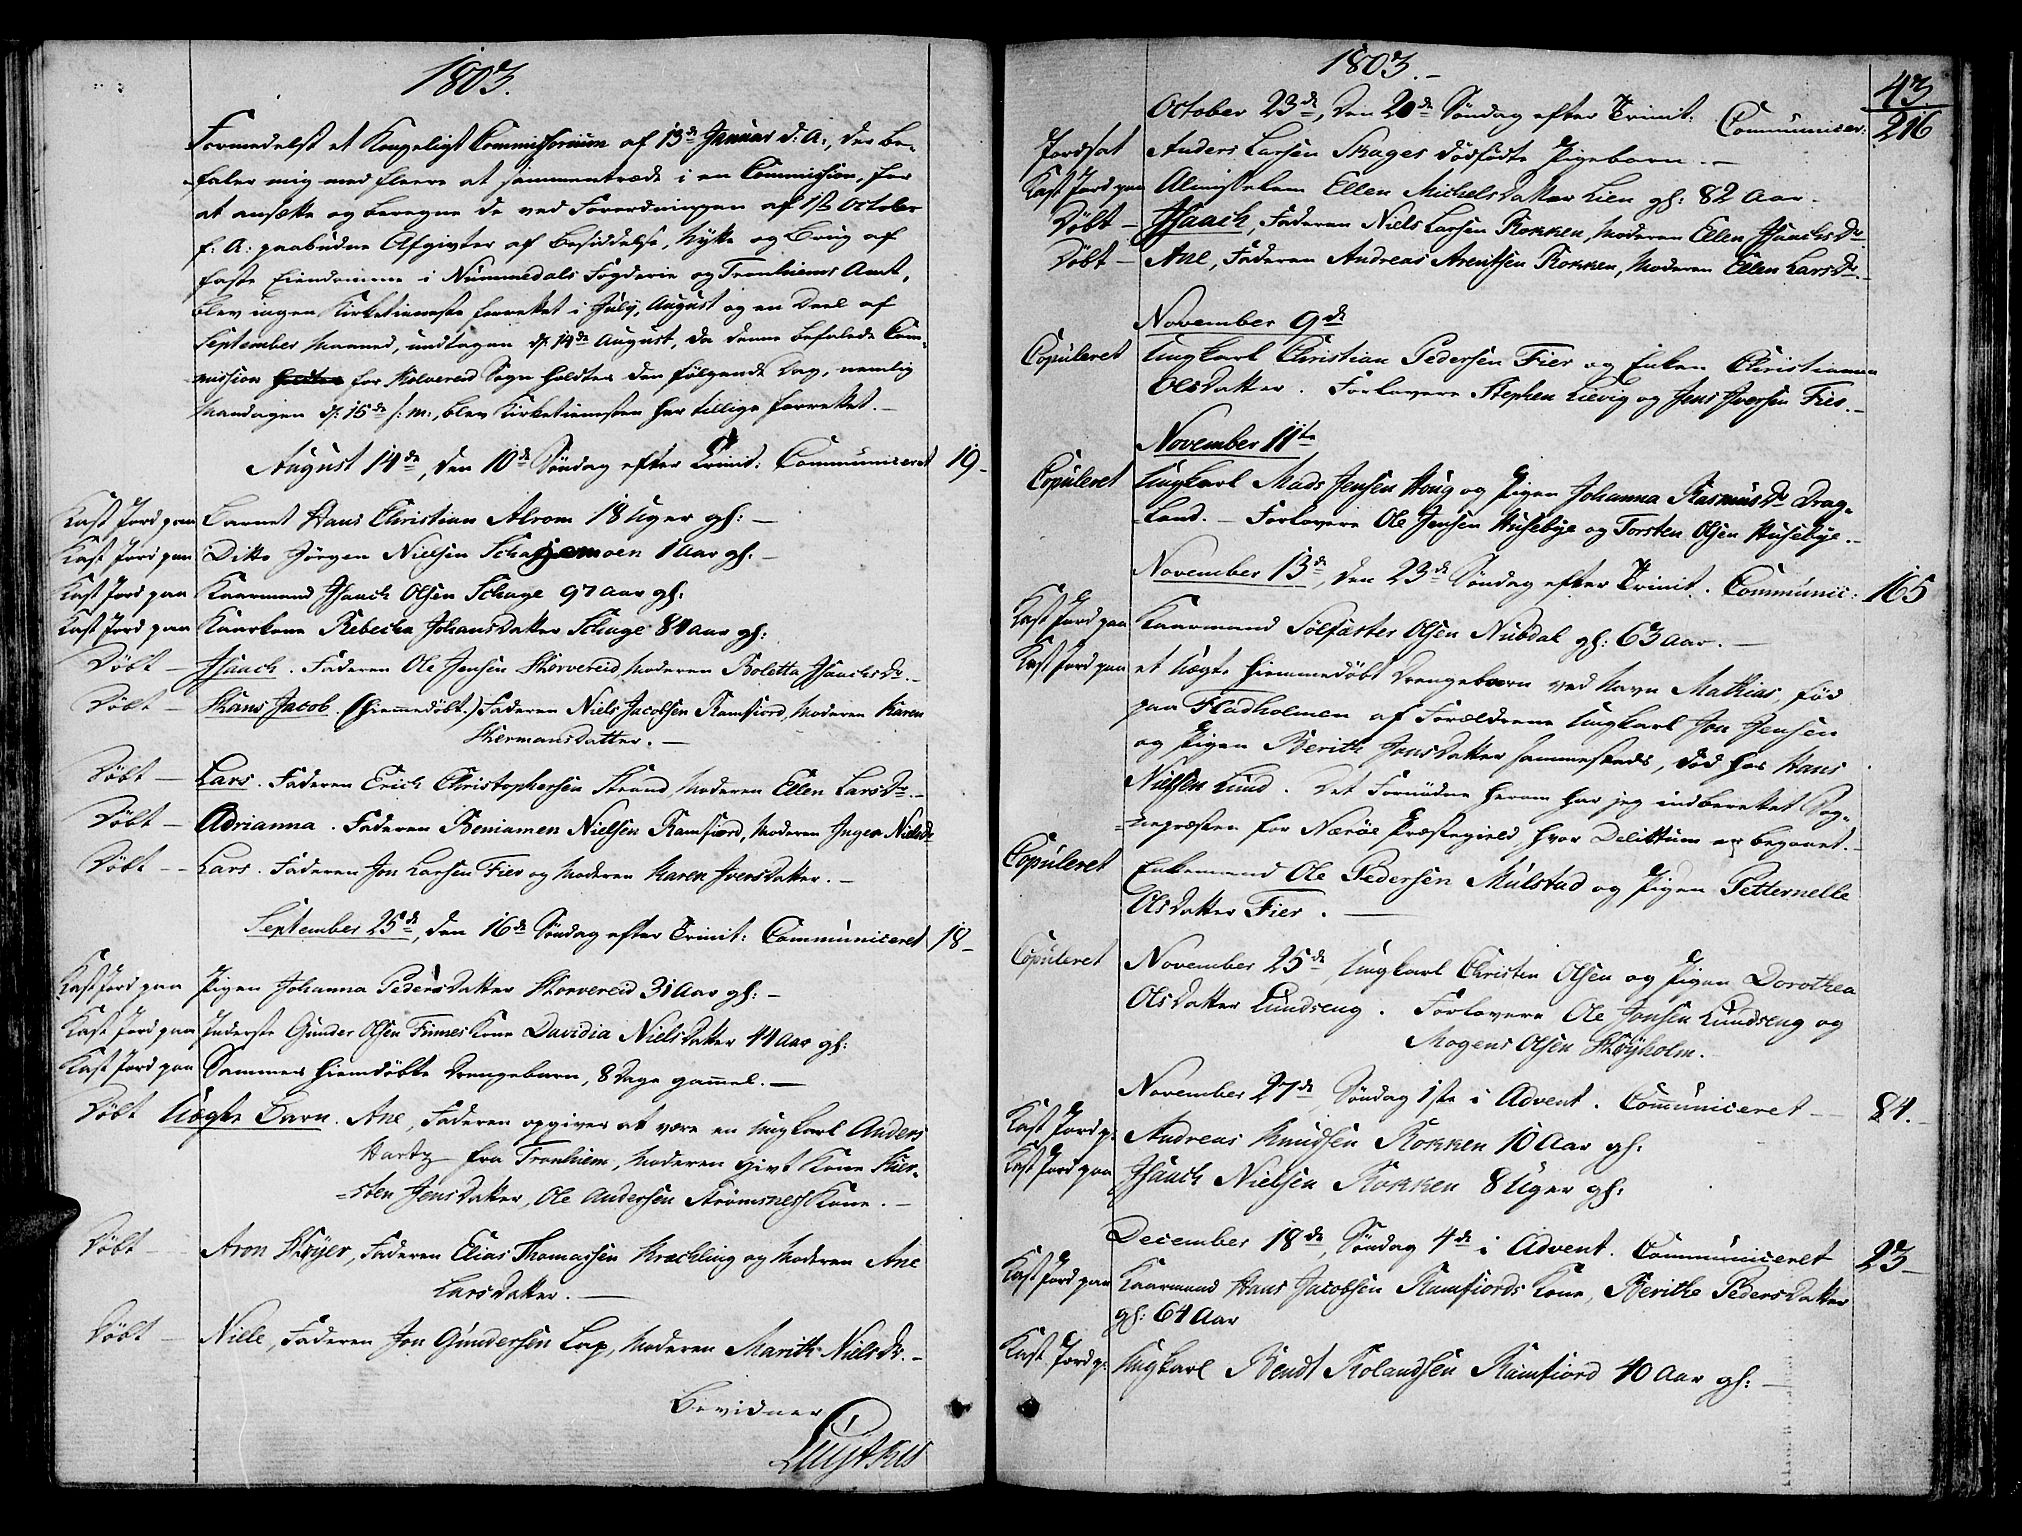 1803.
Formedelst et Kongeligt Commissorium af 13de Januar d: A:, der be-
faler mig med fleere at sammentræde i en Commission, for
at ansætte og beregne de ved Forordningen af 1ste October
f: A: paabudne Afgivter af Besiddelse, Nytte og Brug af
faste Eiendomme i Nummedals Fogderie og Tronhiems Amt,
blev ingen Kirketieneste forrettet i July, August og en Deel af
September Maaned, undtagen d. 14de August, da denne befalede Com-
mission for Kolvereid Sogn holdtes den følgende Dag, nemlig
Mandagen d. 15de s: m:, blev Kirketienesten her tillige forrettet. -
August 14de, den 10de Søndag efter Trinit: Communiceret 19-
Kast Jord paa Barnet Hans Christian Alrom 18 Uger gl: -
Kast Jord paa Ditto Jørgen Nielsen Schagemoen 1 Aar gl. -
Kast Jord paa Kaarmand Isaach Olsen Schage 97 Aar gl:
Kast Jord paa Kaarkone Rebecha Johansdatter Schage 84 Aar gl:
Døbt - Isaach. Faderen Ole Jensen Horvereid, Moderen Boletta Isaachs Dr. -
Døbt - Hans Jacob. (hiemmedøbt.) Faderen Niels Jacobsen Ramfiord, Moderen Karen
Hermansdatter. -
Døbt - Lars. Faderen Erich Christophersen Strand, Moderen Ellen Lars Dr. -
Døbt - Adrianna. Faderen Beniamen Nielsen Ramfiord, Moderen Inger Niels Dr
Døbt - - Lars. Faderen Jon Larsen Fier og Moderen Karen Iversdatter. -
September 25de, den 16de Søndag efter Trinit: Communiceret 18-
Kast Jord paa Pigen Johanna Pedersdatter Horvereid 31 Aar gl: -
Kast Jord paa Inderste Gunder Olsen Finnes Kone Davidia Nielsdatter 44 Aar gl:
Kast Jord paa Sammes hiemdøbte Drengebarn, 8 Dage gammel. -
Døbt Uægte Barn. Ane, Faderen opgives at være en Ungkarl Anders
Hartz fra Tronhiem, Moderen givt Kone Kier-
sten Jensdatter, Ole Andersen Strømsnes Kone. -
Døbt - Aron Høyer, Faderen Elias Thomassen Kræchling og Moderen Ane
Larsdatter. -
Døbt - Niele, Faderen Jon Gundersen Lap, Moderen Marith Niels Dr. -
Bevidner
1803. -
43.
October 23de, den 20de Søndag efter Trinit: Communicer: 216
Jordsat Anders Larsen Skages dødfødte Pigebarn. -
Kast Jord paa Almisselem Ellen Michelsdatter Lien gl: 82 Aar. -
Døbt - Isaach, Faderen Niels Larsen Rokken, Moderen Ellen Isaachs Dr
Døbt - Ane, Faderen Andreas Arentsen Rokken, Moderen Ellen Lars Dr. -
November 9de
Copuleret Ungkarl Christian Pedersen Fier og Enken Christianna
Olsdatter. Forlovere Stephen Lievig og Jens Iversen Fier. -
November 11te
Copuleret Ungkarl Mads Jensen Houg og Pigen Johanna Rasmus Dr Drag-
land. - Forlovere Ole Jensen Husebye og Torsten Olsen Husebye. -
November 13de, den 23de Søndag efter Trinit. Communic: 165
Kast Jord paa Kaarmand Sølfæster Olsen Nubdal gl: 63 Aar. -
Kast Jord paa et Uægte hiemmedøbt Drengebarn ved Navn Mathias, fød
paa Fladholmen af Forældrene Ungkarl Jon Jensen
og Pigen Berith Jonsdatter sammesteds, død hos Hans
Nielsen Lund. Det Fornødne herom har jeg indberettet Sog-
nepræsten for Nærøe Præstegield, hvor Delictum er begaaet. -
Copuleret Enkemand Ole Pedersen Mulstad og Pigen Petternelle
Olsdatter Fier. -
Copuleret November 25de, Ungkarl Christen Olsen og Pigen Dorothea
Olsdatter Lundseng. Forlovere Ole Jonsen Lundseng og
Mogens Olsen Høyholm.
November 27de, Søndag 1ste i Advent. Communiceret - 84.
Kast Jord p: Andreas Knudsen Rokken 10 Aar gl:
Kast Jord paa Isaach Nielsen Rokken 8 Uger gl:
December 18de, Søndag 4de i Advent. Communiceret 23-
Kast Jord paa Kaarmand Hans Jacobsen Ramfiords Kone, Berithe Pedersdatter
gl: 64 Aar
Kast Jord p: Ungkarl Bendt Rolandsen Ramfiord 40 Aar gl: -